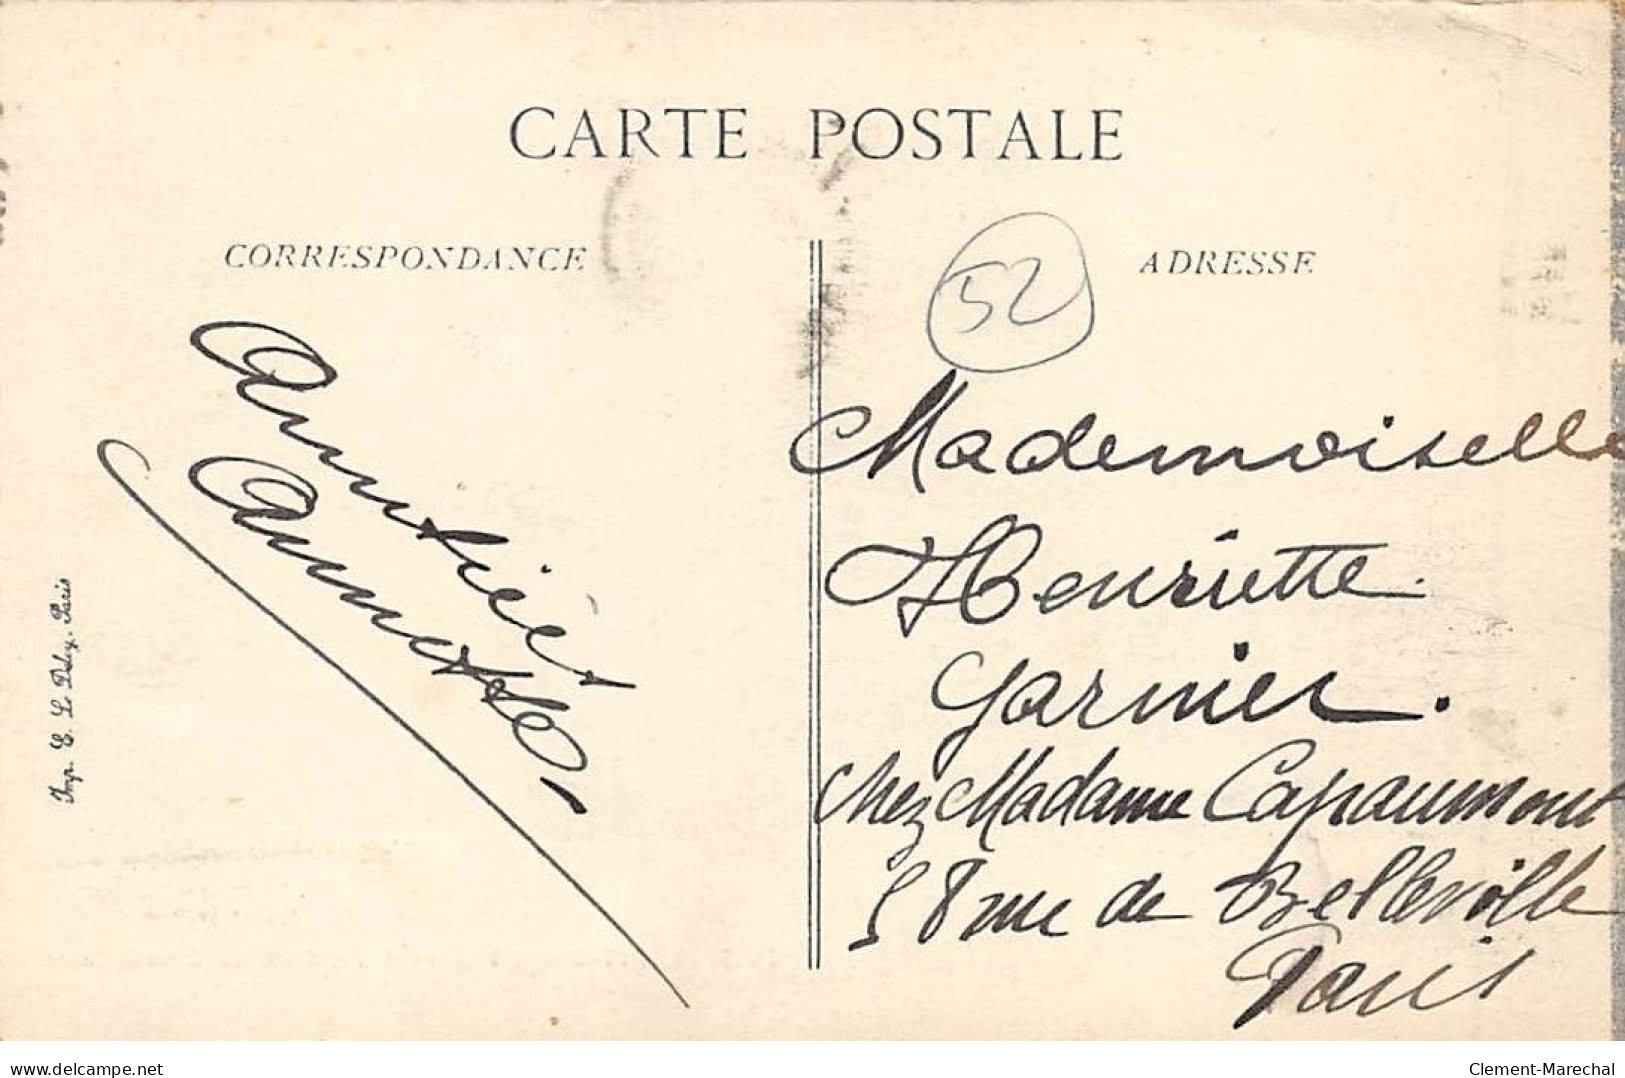 CARTE POSTALE
CORRESPONDANCE
ADRESSE
52
Amitiés
Mademoiselle
Henriette
Garnier.
chez Madame Capaumont
58 rue de Belleville
Paris
Imp. E. L. Deley, Paris
delcampe.net
Clement-Marechal